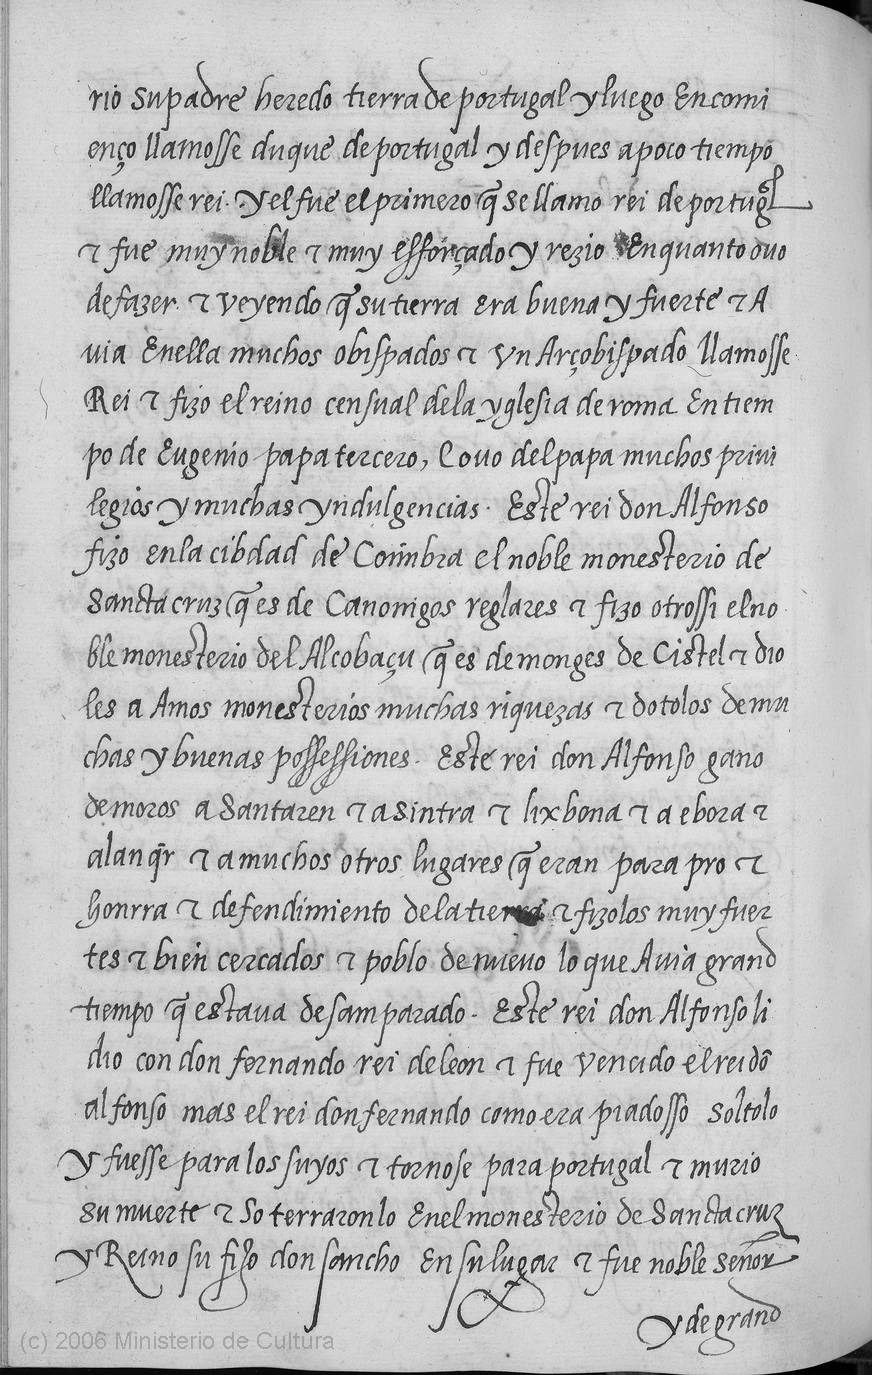 rio su padre heredo tierra de portugal y luego En comi
enço llamosse duque de portugal y despues apoco tiempo
llamosse rei. y el fue el primero q̃ se llamo rei de portugal
τ fue muy noble τ muy esforçado y rezio En quanto ouo
de fazer. τ veyendo q̃ su tierra era buena y fuerte τ A
via Enella muchos obispados τ vn Arçobispado llamosse
Rei τ fizo el reino censual dela yglesia de roma En tiem
po de Eugenio papa tercero, E ouo del papa muchos privi
legios y muchas yndulgencias. Este rei don Alfonso
fizo en la cibdad de Coimbra el noble monesterio de
Sancta cruz q̃ es de Canonigos reglares τ fizo otrossi el no
ble monesterio del Alcobaçu q̃ es de monges de Cistel τ dio
les a Amos monesterios muchas riquezas τ dotolos de mu
chas y buenas possessiones. Este rei don Alfonso gano
de moros a Santaren τ a sintra τ lixbona τ a ebora τ
alanq̃r τ a muchos otros lugares q̃ eran para pro τ
honrra τ defendimiento dela tierra τ fizolos muy fuer
tes τ bien cercados τ poblo de nuevo lo que Auia grand
tiempo q̃ estaua desamparado. Este rei don Alfonso li
dio con don fernando rei de leon τ fue vencido el rei dõ
alfonso mas el rei don fernando como era piadosso soltolo
y fuesse para los suyos τ tornose para portugal τ murio
su muerte τ so terraronlo En el monesterio de Sancta cruz
y Reino su fijo don sancho En su lugar τ fue noble señor
y de grand
(c) 2006 Ministerio de Cultura